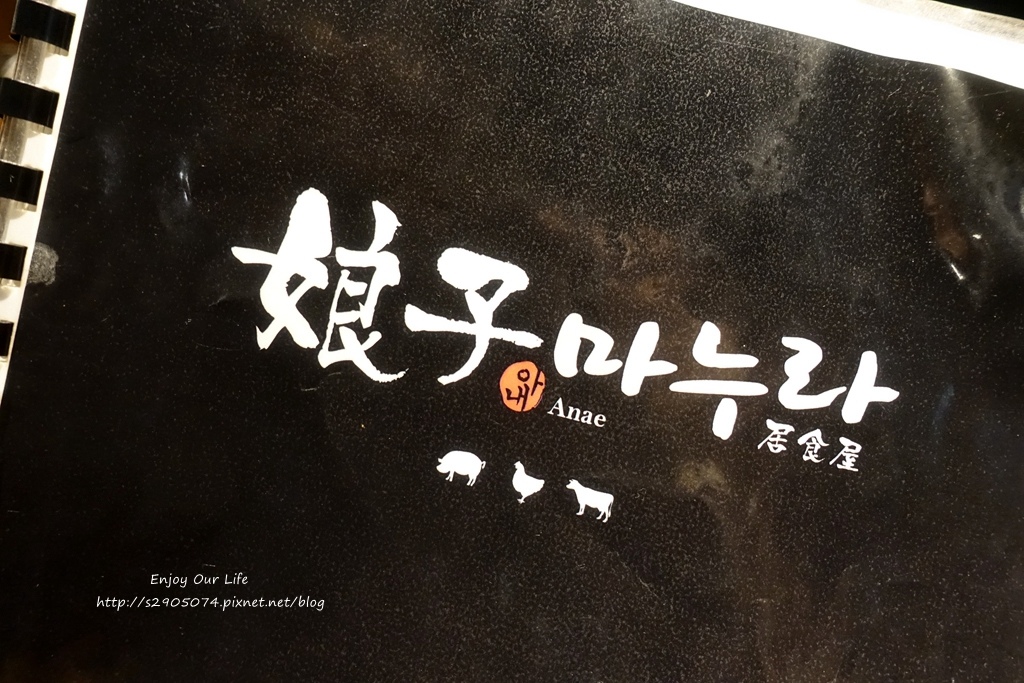 娘子 마누라
아내 Anae
居食屋
Enjoy Our Life
http://s2905074.pixnet.net/blog